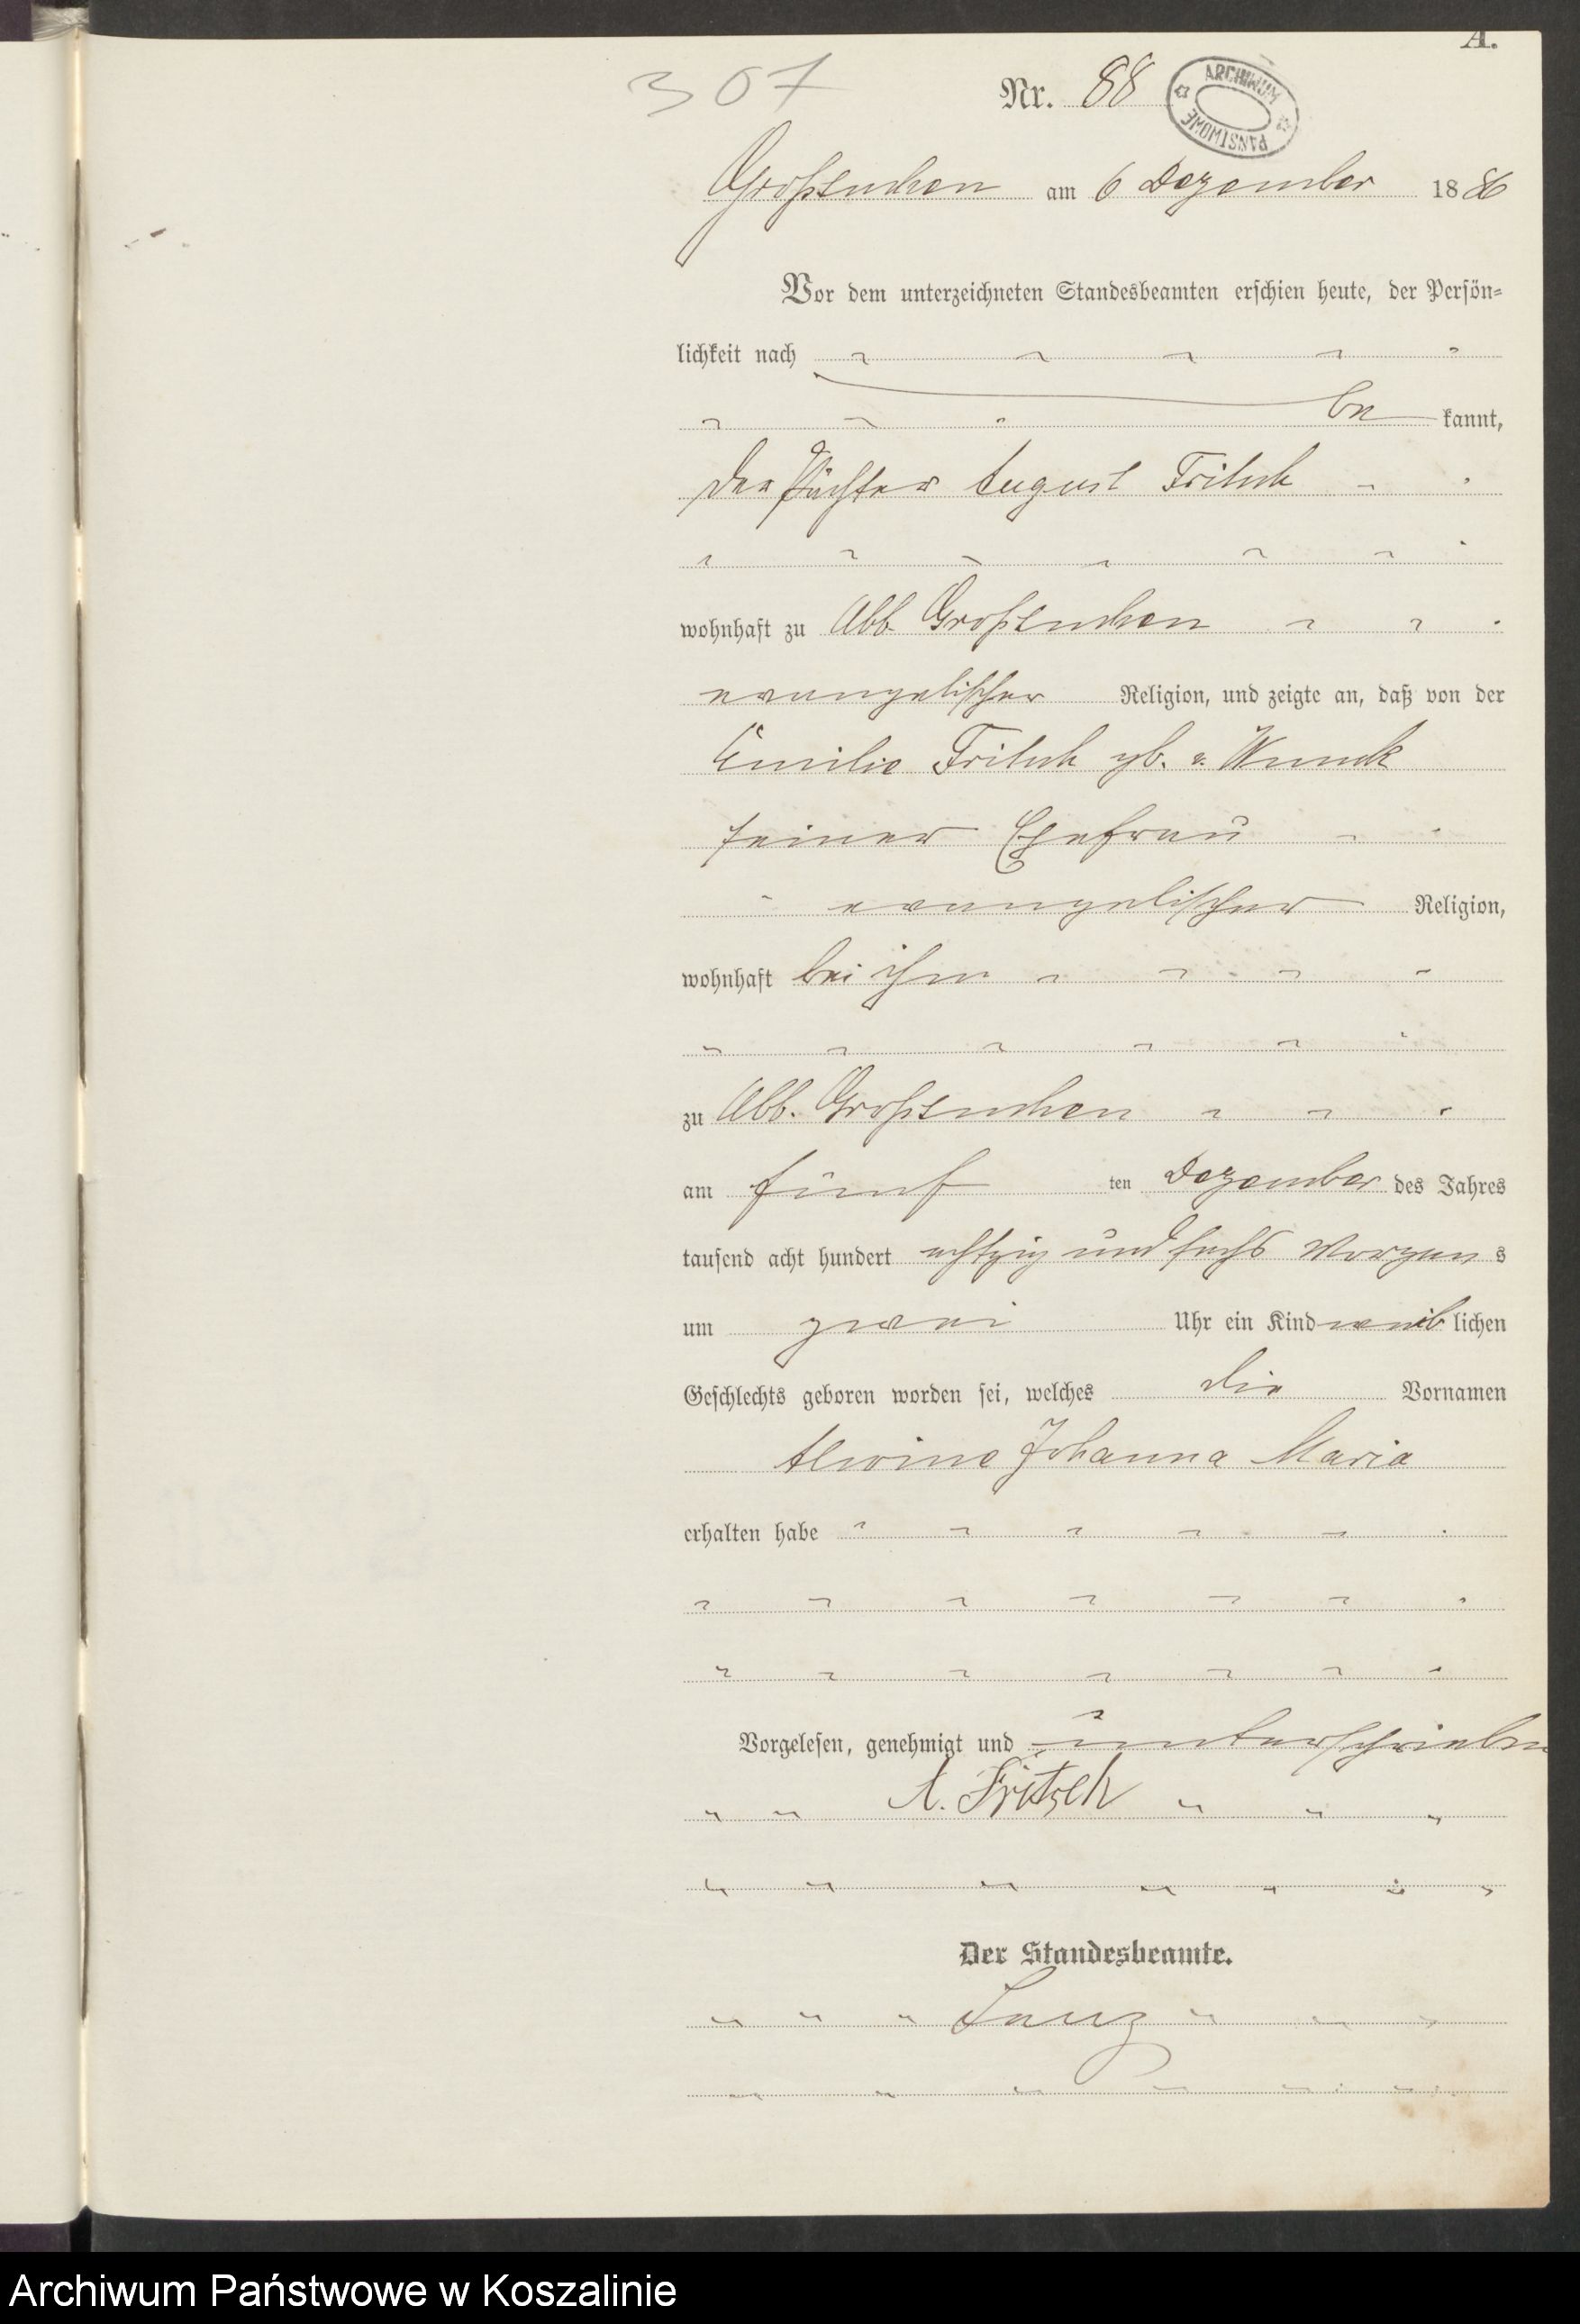 A.
307
Nr. 88
ARCHIWUM PAŃSTWOWE
Großtuchen am 6 Dezember 1886
Vor dem unterzeichneten Standesbeamten erschien heute, der Persön-
lichkeit nach
be kannt,
der Pächter August Fritsch
wohnhaft zu Abb. Großtuchen
evangelischer Religion, und zeigte an, daß von der
Emilie Fritsch gb. v.
seiner Ehefrau
evangelischer Religion,
wohnhaft bei ihm
zu Abb. Großtuchen
am fünf ten Dezember des Jahres
tausend acht hundert achtzig und sechs Morgens
um zwei Uhr ein Kind weiblichen
Geschlechts geboren worden sei, welches die Vornamen
Alwine Johanna Maria
erhalten habe
Vorgelesen, genehmigt und unterschrieben
A. Fritsch
Der Standesbeamte.
Archiwum Państwowe w Koszalinie